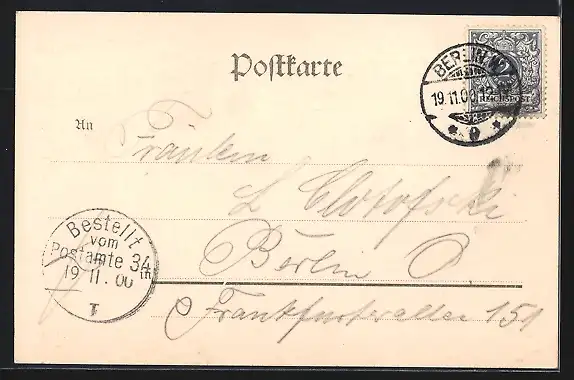 Postkarte
BERLIN.N
19.11.00.12
REICHSPOST
An
Fräulein
L Clotofski
Berlin O
Frankfurterallee 151
Bestellt
vom
Postamte 34
19 11. 00